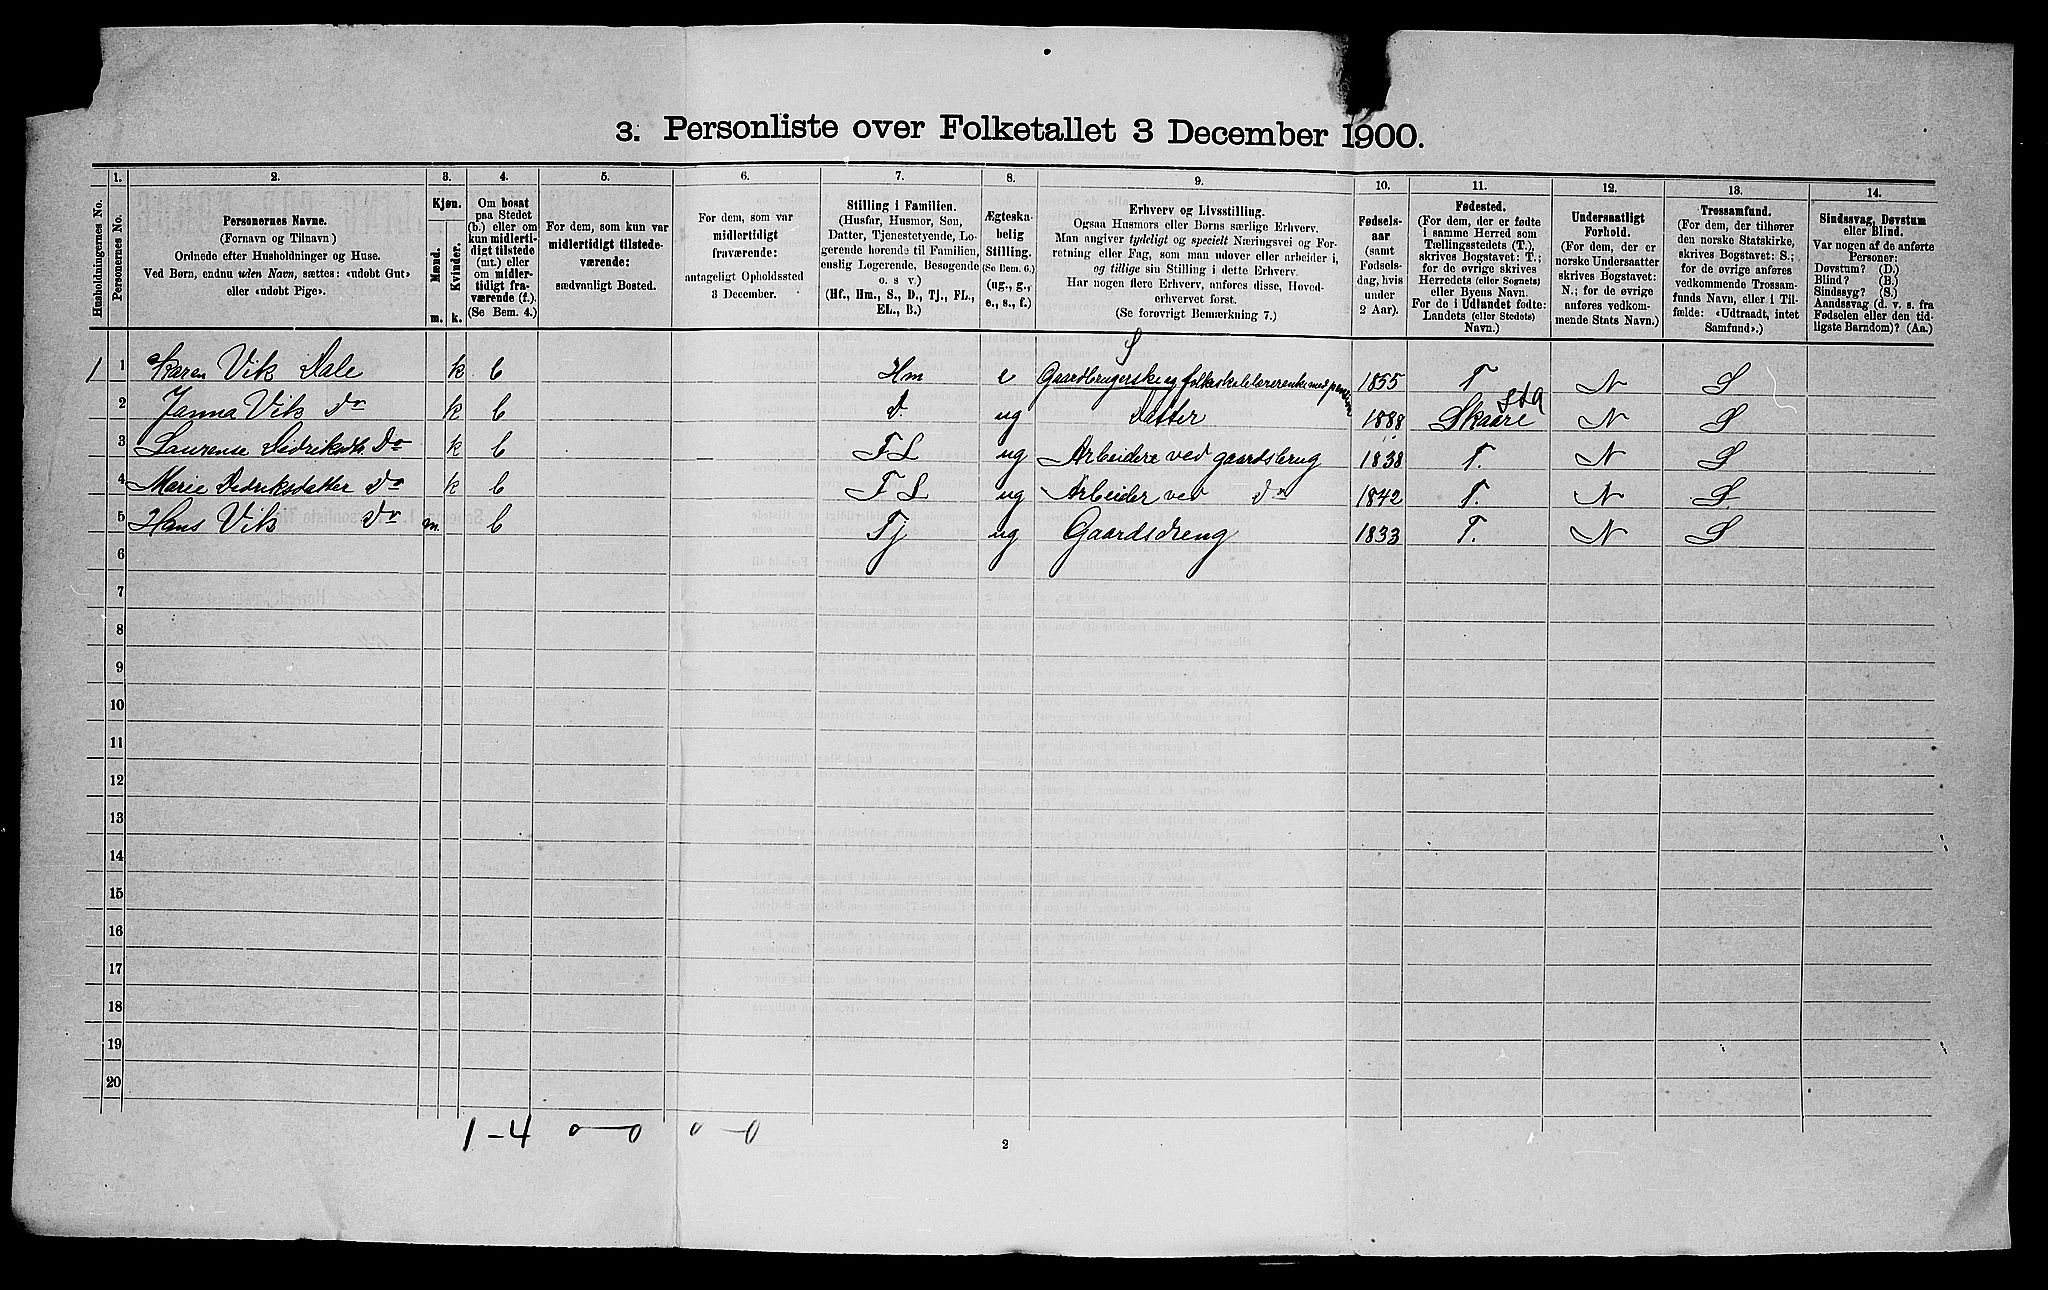 3. Personliste over Folketallet 3 December 1900.
1. 2. 3. 4. 5. 6. 7. 8. 9. 10. 11. 12. 13. 14.
Husholdningernes No.
Personernes No.
Personernes Navne.
(Fornavn og Tilnavn)
Ordnede efter Husholdninger og Huse.
Ved Børn, endnu uden Navn, sættes: «udøbt Gut»
eller «udøbt Pige».
Kjøn.
Mænd.
Kvinder.
m. k.
Om bosat
paa Stedet
(b.) eller om
kun midlerti-
digt tilstede
(mt.) eller
om midler-
tidigt fra-
værende (f.).
(Se Bem. 4.)
For dem, som kun var
midlertidigt tilstede-
værende:
sædvanligt Bosted.
For dem, som var
midlertidigt
fraværende:
antageligt Opholdssted
3 December.
Stilling i Familien.
(Husfar, Husmor, Søn,
Datter, Tjenestetyende, Lo-
gerende hørende til Familien,
enslig Logerende, Besøgende
o. s v.)
(Hf., Hm., S., D., Tj., FL.,
EL., B.)
Ægteska-
belig
Stilling.
(Se Bem. 6.)
(ug., g.,
e., s., f.)
Erhverv og Livsstilling.
Ogsaa Husmors eller Børns særlige Erhverv.
Man angiver tydeligt og specielt Næringsvei og For-
retning eller Fag, som man udøver eller arbeider i,
og tillige sin Stilling i dette Erhverv.
Har nogen flere Erhverv, anføres disse, Hoved-
erhvervet først.
(Se forøvrigt Bemærkning 7.)
Fødsels-
aar
(samt
Fødsels-
dag, hvis
under
2 Aar).
Fødested.
(For dem, der er fødte
i samme Herred som
Tællingsstedets (T.),
skrives Bogstavet: T.;
for de øvrige skrives
Herredets (eller Sognets)
eller Byens Navn.
For de i Udlandet fødte:
Landets (eller Stedets)
Navn.)
Undersaatligt
Forhold.
(For dem, der er
norske Undersaatter
skrives Bogstavet:
N.; for de øvrige
anføres vedkom-
mende Stats Navn.)
Trossamfund.
(For dem, der tilhører
den norske Statskirke,
skrives Bogstavet: S.;
for de øvrige anføres
vedkommende Trossam-
funds Navn, eller i Til-
fælde: «Udtraadt, intet
Samfund».)
Sindssvag, Døvstum
eller Blind.
Var nogen af de anførte
Personer:
Døvstum? (D.)
Blind? (B.)
Sindssyg? (S.)
Aandssvag (d. v. s. fra
Fødselen eller den tid-
ligste Barndom)? (Aa.)
S
1 1 Karen Vik Dale k b Hm e Gaardbrugerske og folkeskolelærerenke med pension 1835 T N S
2 Janna Vik Do k b D. ug Datter 1888 Skaare N S
3 Laurense Didriksdt. Do k b F L ug Arbeidere ved gaardsbrug 1838 T. N S
4 Marie Dedriksdatter Do k b F L ug Arbeider ved Do 1842 T. N S.
5 Hans Vik Do m b Tj ug Gaardsdreng 1833 T. N S
6
7
8
9
10
11
12
13
14
15
16
17
18
19
20
1-4 0-0 0-0
2